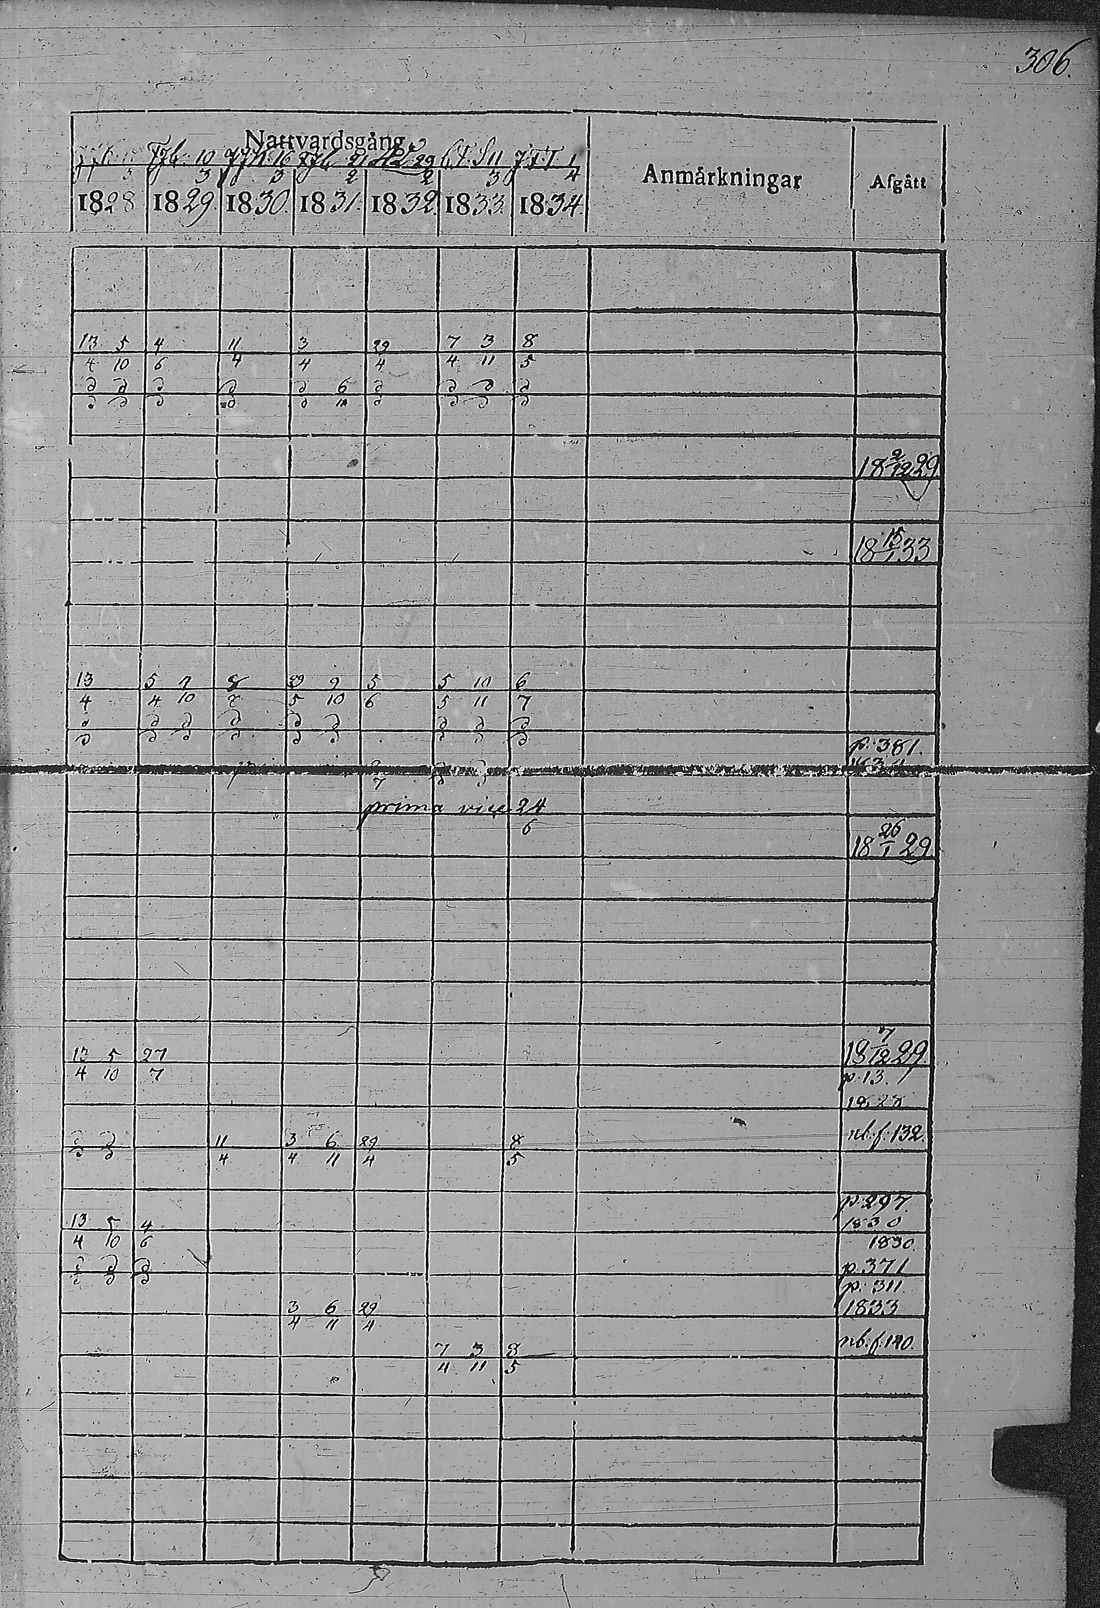 306.
Nattvardsgång. Anmärkningar Afgått
10 16 21 29 11 1
3 3 3 2 2 3 4
1828 1829 1830. 1831. 1832. 1833. 1834.
13 5 4 11 3 29 7 3 8
4 10 6 4 4 4 4 11 5
d d d d d 6 d d d d
d d d d d 11 d d d d
18 2/12 29
18 15/1 33
13 5 7 8 3 9 5 5 10 6
4 4 10 5 10 6 5 11 7
d d d d d d d d d
d d d d d d d d d
p. 381.
7
prima vice 24
6
18 26/1 29.
13 5 27 18 7/12 29.
4 10 7 p. 13.
1828
d d 11 3 6 29 8 nb. f. 132.
d d 4 4 11 4 5
p. 297
13 5 4 1830
4 10 6 1830.
d d d p. 371
d d d p. 311
3 6 29 1833
4 11 4
7 3 8 nb. f. 140.
4 11 5